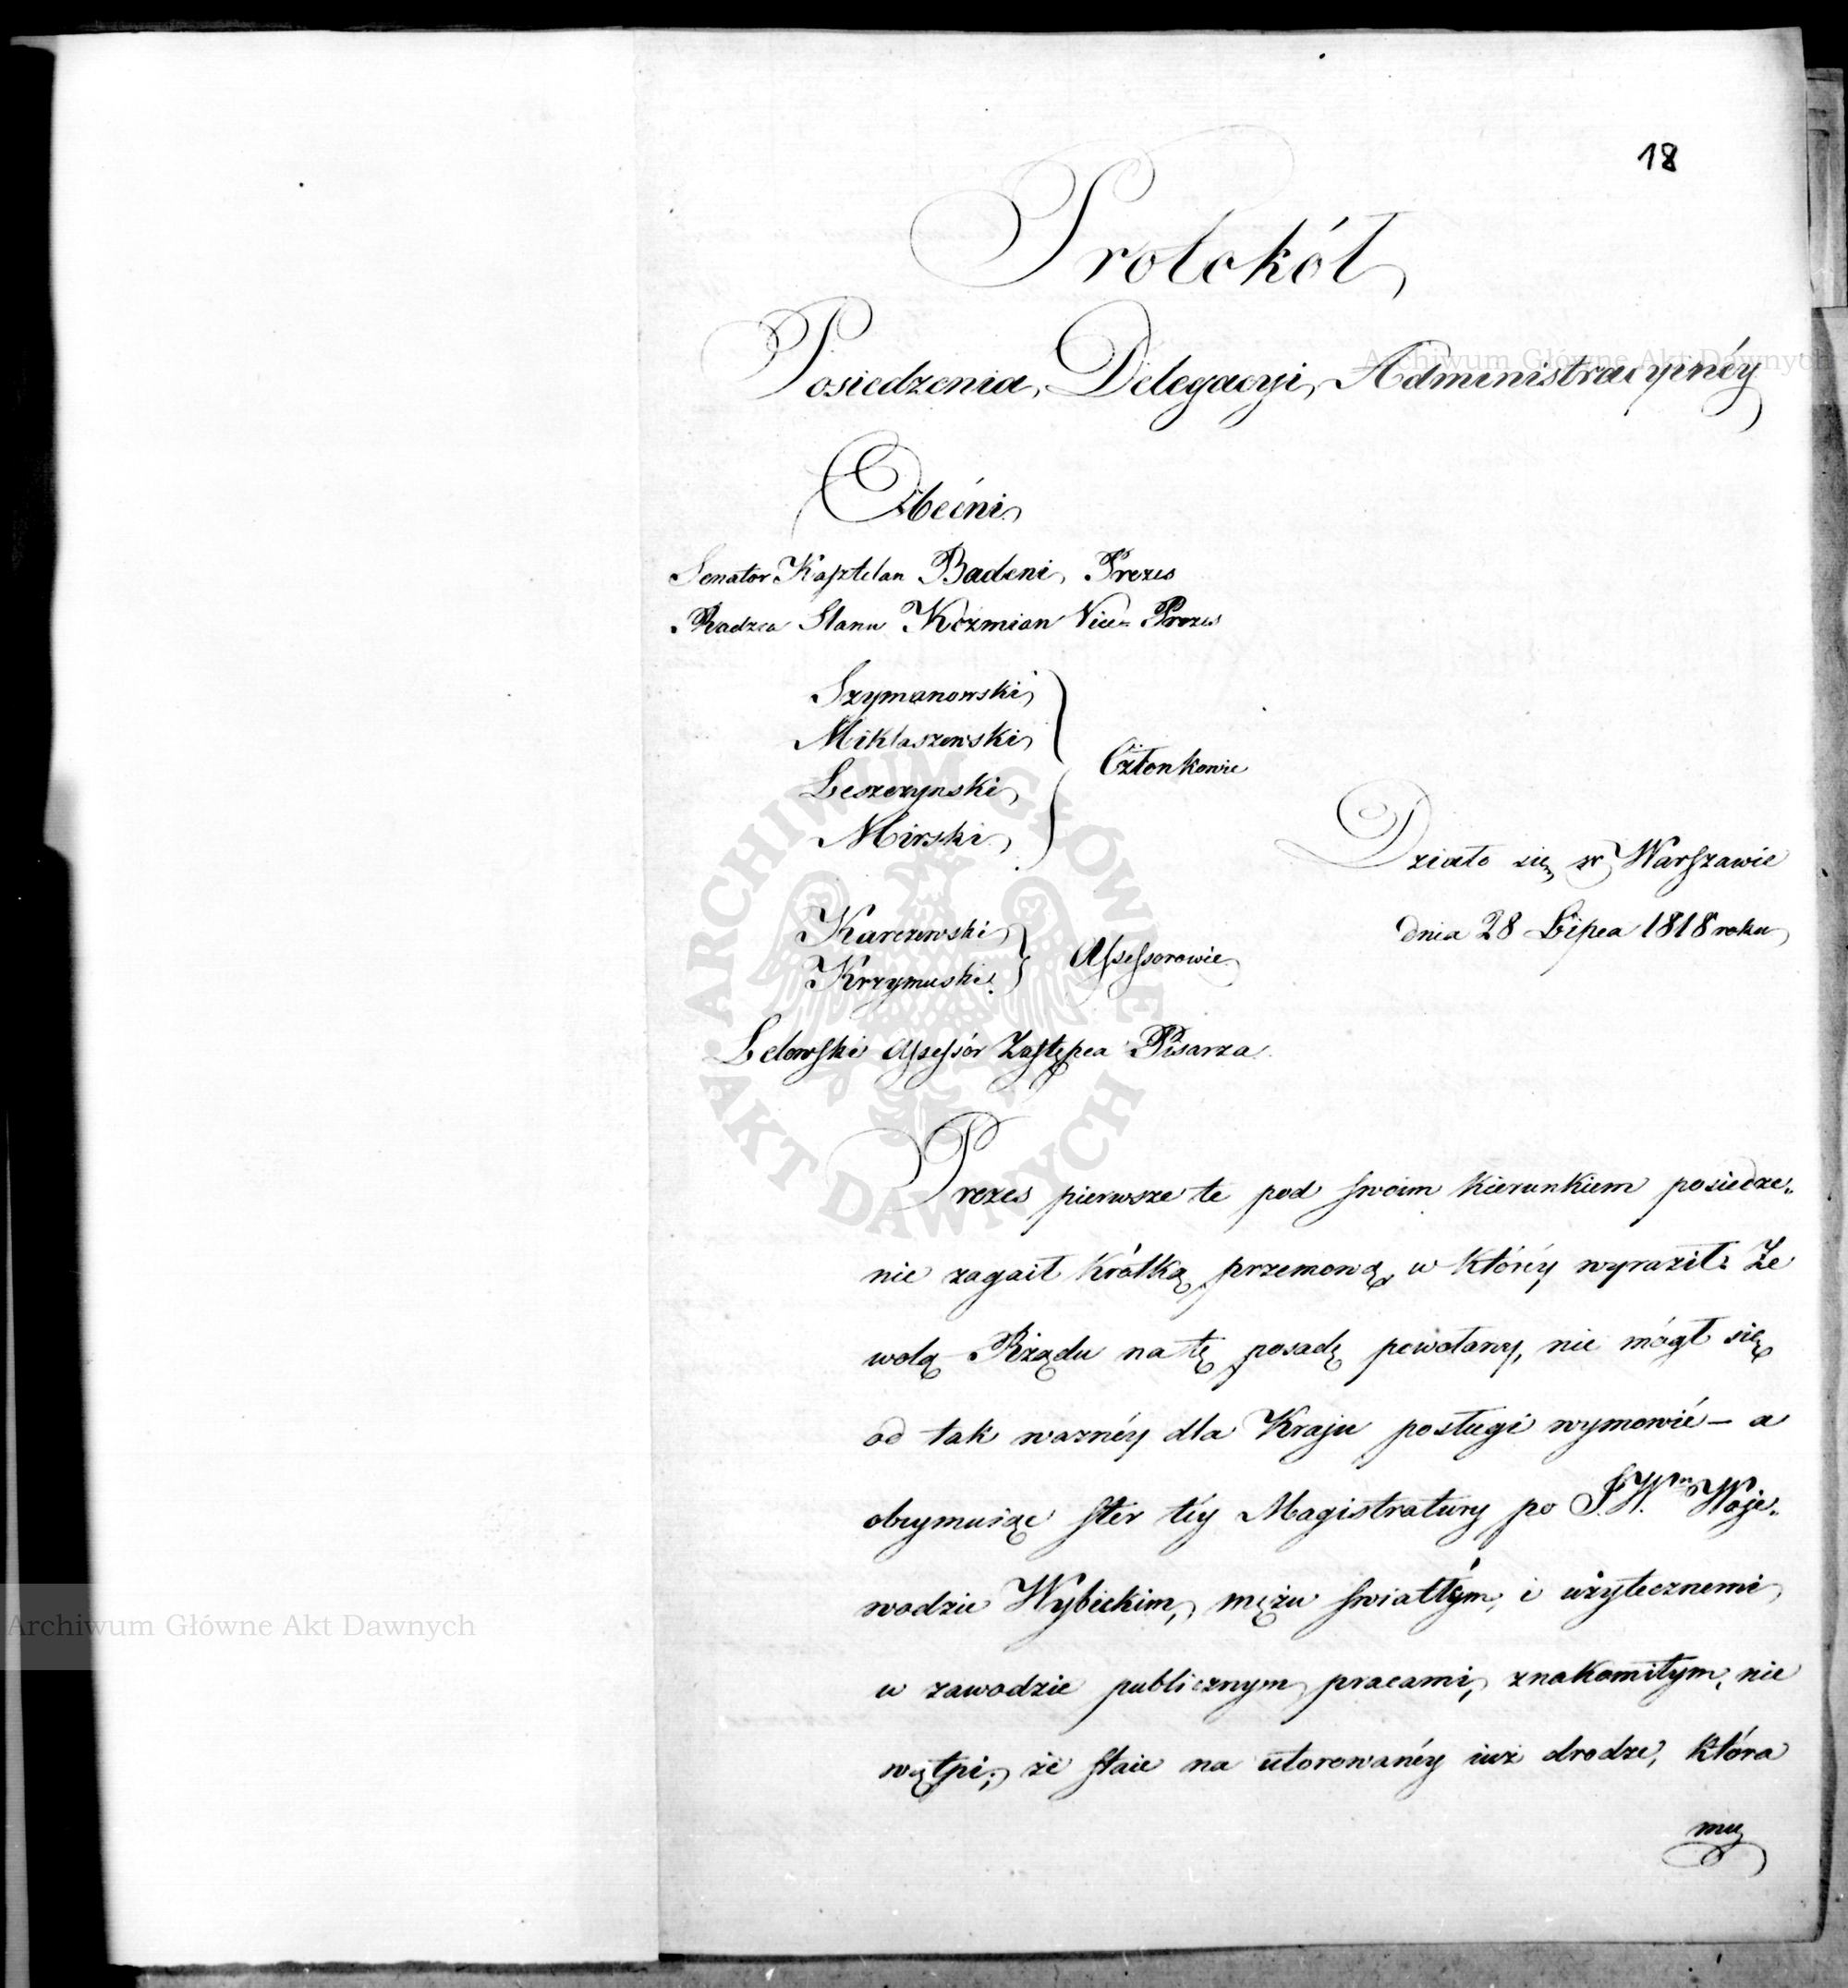 18
Protokół
Posiedzenia Delegacyi Administracyinéy
Obecni
Senator Kasztelan Badeni Prezes
Radzca Stanu Koźmian Vice-Prezes
Szymanowski
Miklaszewski
Leszczynski
Mirski
Członkowie
Działo się w Warszawie
dnia 28 Lipca 1818 roku
Karczewski
Krzymuski
Assessorowie
Lelowski Assessór Zastępca Pisarza
Prezes pierwsze te pod swoim kierunkiem posiedze„
nie zagaił krótką przemową w któréy wyraził: Że
wolą Rządu na tę posadę powołany, nie mógł się
od tak waznéy dla Kraju posługi wymowić – a
obeymuiąc ster téy Magistratury po J.W.m Woje„
wodzie Wybickim, mężu swiatłym, i użytecznemi
w zawodzie publicznym pracami, znakomitym, nie
wątpi, że staie na utorowanéy iuż drodze, która
mu
Archiwum Główne Akt Dawnych
ARCHIWUM GŁÓWNE AKT DAWNYCH
Archiwum Główne Akt Dawnych